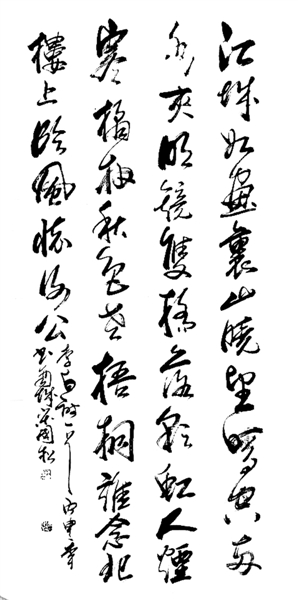 江城如畫裏山曉望晴空兩
水夾明鏡雙橋落彩虹人煙
寒橘柚秋色老梧桐誰念北
樓上臨風懷謝公
李白詩一首丙申年
國松